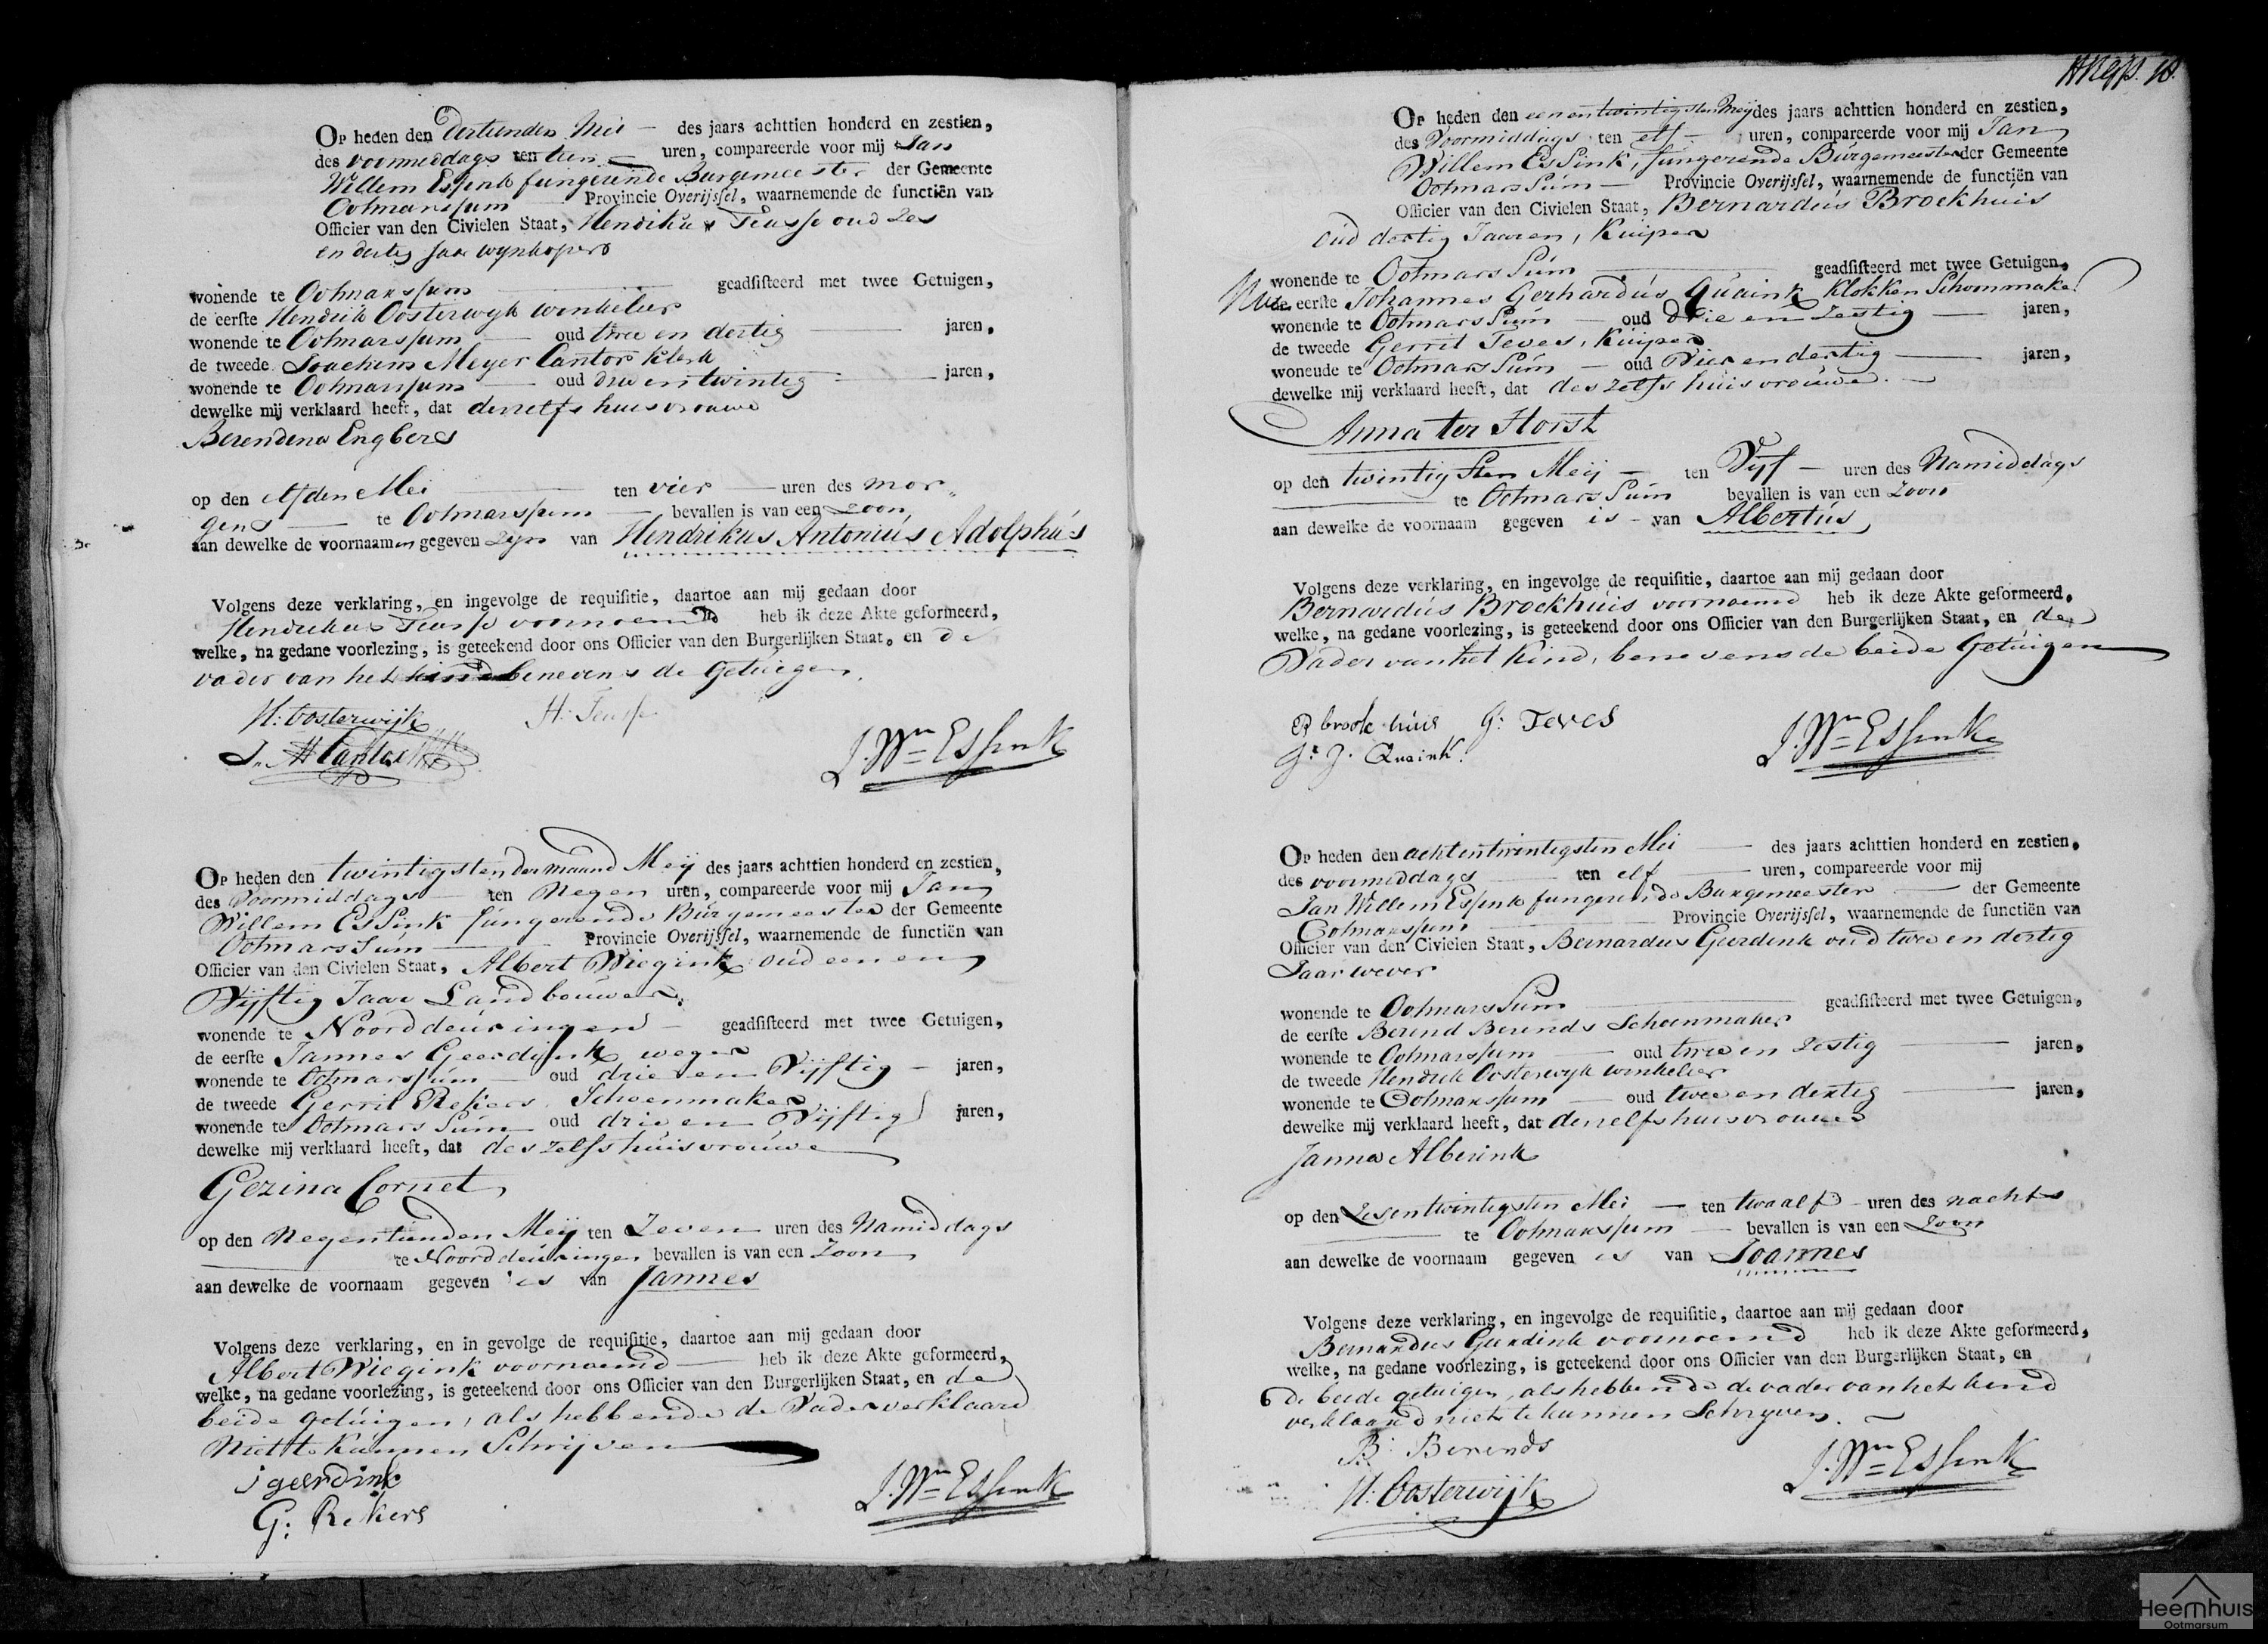 Op heden den dertienden Mei — des jaars achttien honderd en zestien,
des voormiddags ten tien — uren, compareerde voor mij Jan
Willem Essink fungerende Burgemeester der Gemeente
Ootmarssum — Provincie Overijssel, waarnemende de functiën van
Officier van den Civielen Staat, Hendrikus Teusse oud zes
en dertig jaar wynkoper
wonende te Ootmarssum — geadsisteerd met twee Getuigen,
de eerste Hendrik Oosterwyk winkelier
wonende te Ootmarssum — oud twee en dertig — jaren,
de tweede Joachem Meyer Cantor klerk
wonende te Ootmarssum — oud drie en twintig — jaren,
dewelke mij verklaard heeft, dat deszelfs huisvrouwe
Berendena Engbers
op den elfden Mei — ten vier — uren des mor„
gens — te Ootmarssum — bevallen is van een zoon
aan dewelke de voornaamen gegeven zyn van Hendrikus Antonius Adolphus
Volgens deze verklaring, en ingevolge de requisitie, daartoe aan mij gedaan door
Hendrikus Teusse voornoemd heb ik deze Akte geformeerd,
welke, na gedane voorlezing, is geteekend door ons Officier van den Burgerlijken Staat, en de
vader van het kind benevens de Getuigen.
H: Oosterwijk H: Teusse
J. Wm Essink
Op heden den twintigsten der maand Meij des jaars achttien honderd en zestien,
des Voormiddags — ten Negen uren, compareerde voor mij Jan
Willem Essink fungerende Burgemeester der Gemeente
Ootmarssum — Provincie Overijssel, waarnemende de functiën van
Officier van den Civielen Staat, Albert Wiegink oud een en
Vijftig Jaar Landbouwer,
wonende te Noorddeuringen — geadsisteerd met twee Getuigen,
de eerste Jannes Geerdink wever
wonende te Ootmarssum — oud drie en Vijftig — jaren,
de tweede Gerrit Rekers, Schoenmaker
wonende te Ootmarssum oud drie en Vijftig jaren,
dewelke mij verklaard heeft, dat deszelfs huisvrouwe
Gezina Cornet
op den Negentienden Meij ten Zeven uren des Namiddags
— te Noorddeuringen bevallen is van een Zoon
aan dewelke de voornaam gegeven is van Jannes
Volgens deze verklaring, en in gevolge de requisitie, daartoe aan mij gedaan door
Albert Wiegink voornoemd — heb ik deze Akte geformeerd,
welke, na gedane voorlezing, is geteekend door ons Officier van den Burgerlijken Staat, en de
beide getuigen, als hebbende de Vader verklaard
Niet te kunnen Schrijven
j geerdink
G: Rekers
J. Wm Essink
Op heden den eenentwintigsten Meij des jaars achttien honderd en zestien,
des Voormiddags ten elf — uren, compareerde voor mij Jan
Willem Essink, fungerende Burgemeester der Gemeente
Ootmarssum — Provincie Overijssel, waarnemende de functiën van
Officier van den Civielen Staat, Bernardus Broekhuis
oud dertig Jaaren, Kuiper
wonende te Ootmarssum — geadsisteerd met twee Getuigen,
de eerste Johannes Gerhardus Quaink Klokken Schommaker
wonende te Ootmarssum — oud drie en zestig — jaren,
de tweede Gerrit Teves, Kuiper
wonende te Ootmarssum — oud Vier en dertig — jaren,
dewelke mij verklaard heeft, dat deszelfs huisvrouwe —
Anna ter Horst
op den twintigsten Meij — ten Vijf — uren des Namiddags
— te Ootmarssum bevallen is van een zoon
aan dewelke de voornaam gegeven is — van Albertus
Volgens deze verklaring, en ingevolge de requisitie, daartoe aan mij gedaan door
Bernardus Broekhuis voornoemd heb ik deze Akte geformeerd,
welke, na gedane voorlezing, is geteekend door ons Officier van den Burgerlijken Staat, en de
Vader van het Kind, benevens de beide Getuigen
B broekhuis G: Teves
J. Quaink
J. Wm Essink
Op heden den achtentwintigsten Mei — des jaars achttien honderd en zestien,
des voormiddags — ten elf — uren, compareerde voor mij
Jan Willem Essink fungerende Burgemeester — der Gemeente
Ootmarssum — Provincie Overijssel, waarnemende de functiën van
Officier van den Civielen Staat, Bernardus Geerdink oud twee en dertig
Jaar wever
wonende te Ootmarssum — geadsisteerd met twee Getuigen,
de eerste Berend Berends Schoenmaker
wonende te Ootmarssum — oud twee en zestig — jaren,
de tweede Hendrik Oosterwyk winkelier
wonende te Ootmarssum — oud twee en dertig — jaren,
dewelke mij verklaard heeft, dat deszelfs huisvrouwe
Janna Alberink
op den zesentwintigsten Mei — ten twaalf — uren des nachts
— te Ootmarssum — bevallen is van een zoon
aan dewelke de voornaam gegeven is van Joannes
Volgens deze verklaring, en ingevolge de requisitie, daartoe aan mij gedaan door
Bernardus Geerdink voornoemd heb ik deze Akte geformeerd,
welke, na gedane voorlezing, is geteekend door ons Officier van den Burgerlijken Staat, en
de beide getuigen, als hebbende de vader van het kind
verklaard niet te kunnen Schryven.
B: Berends
H: Oosterwijk
J. Wm Essink
Heemhuis
Ootmarsum